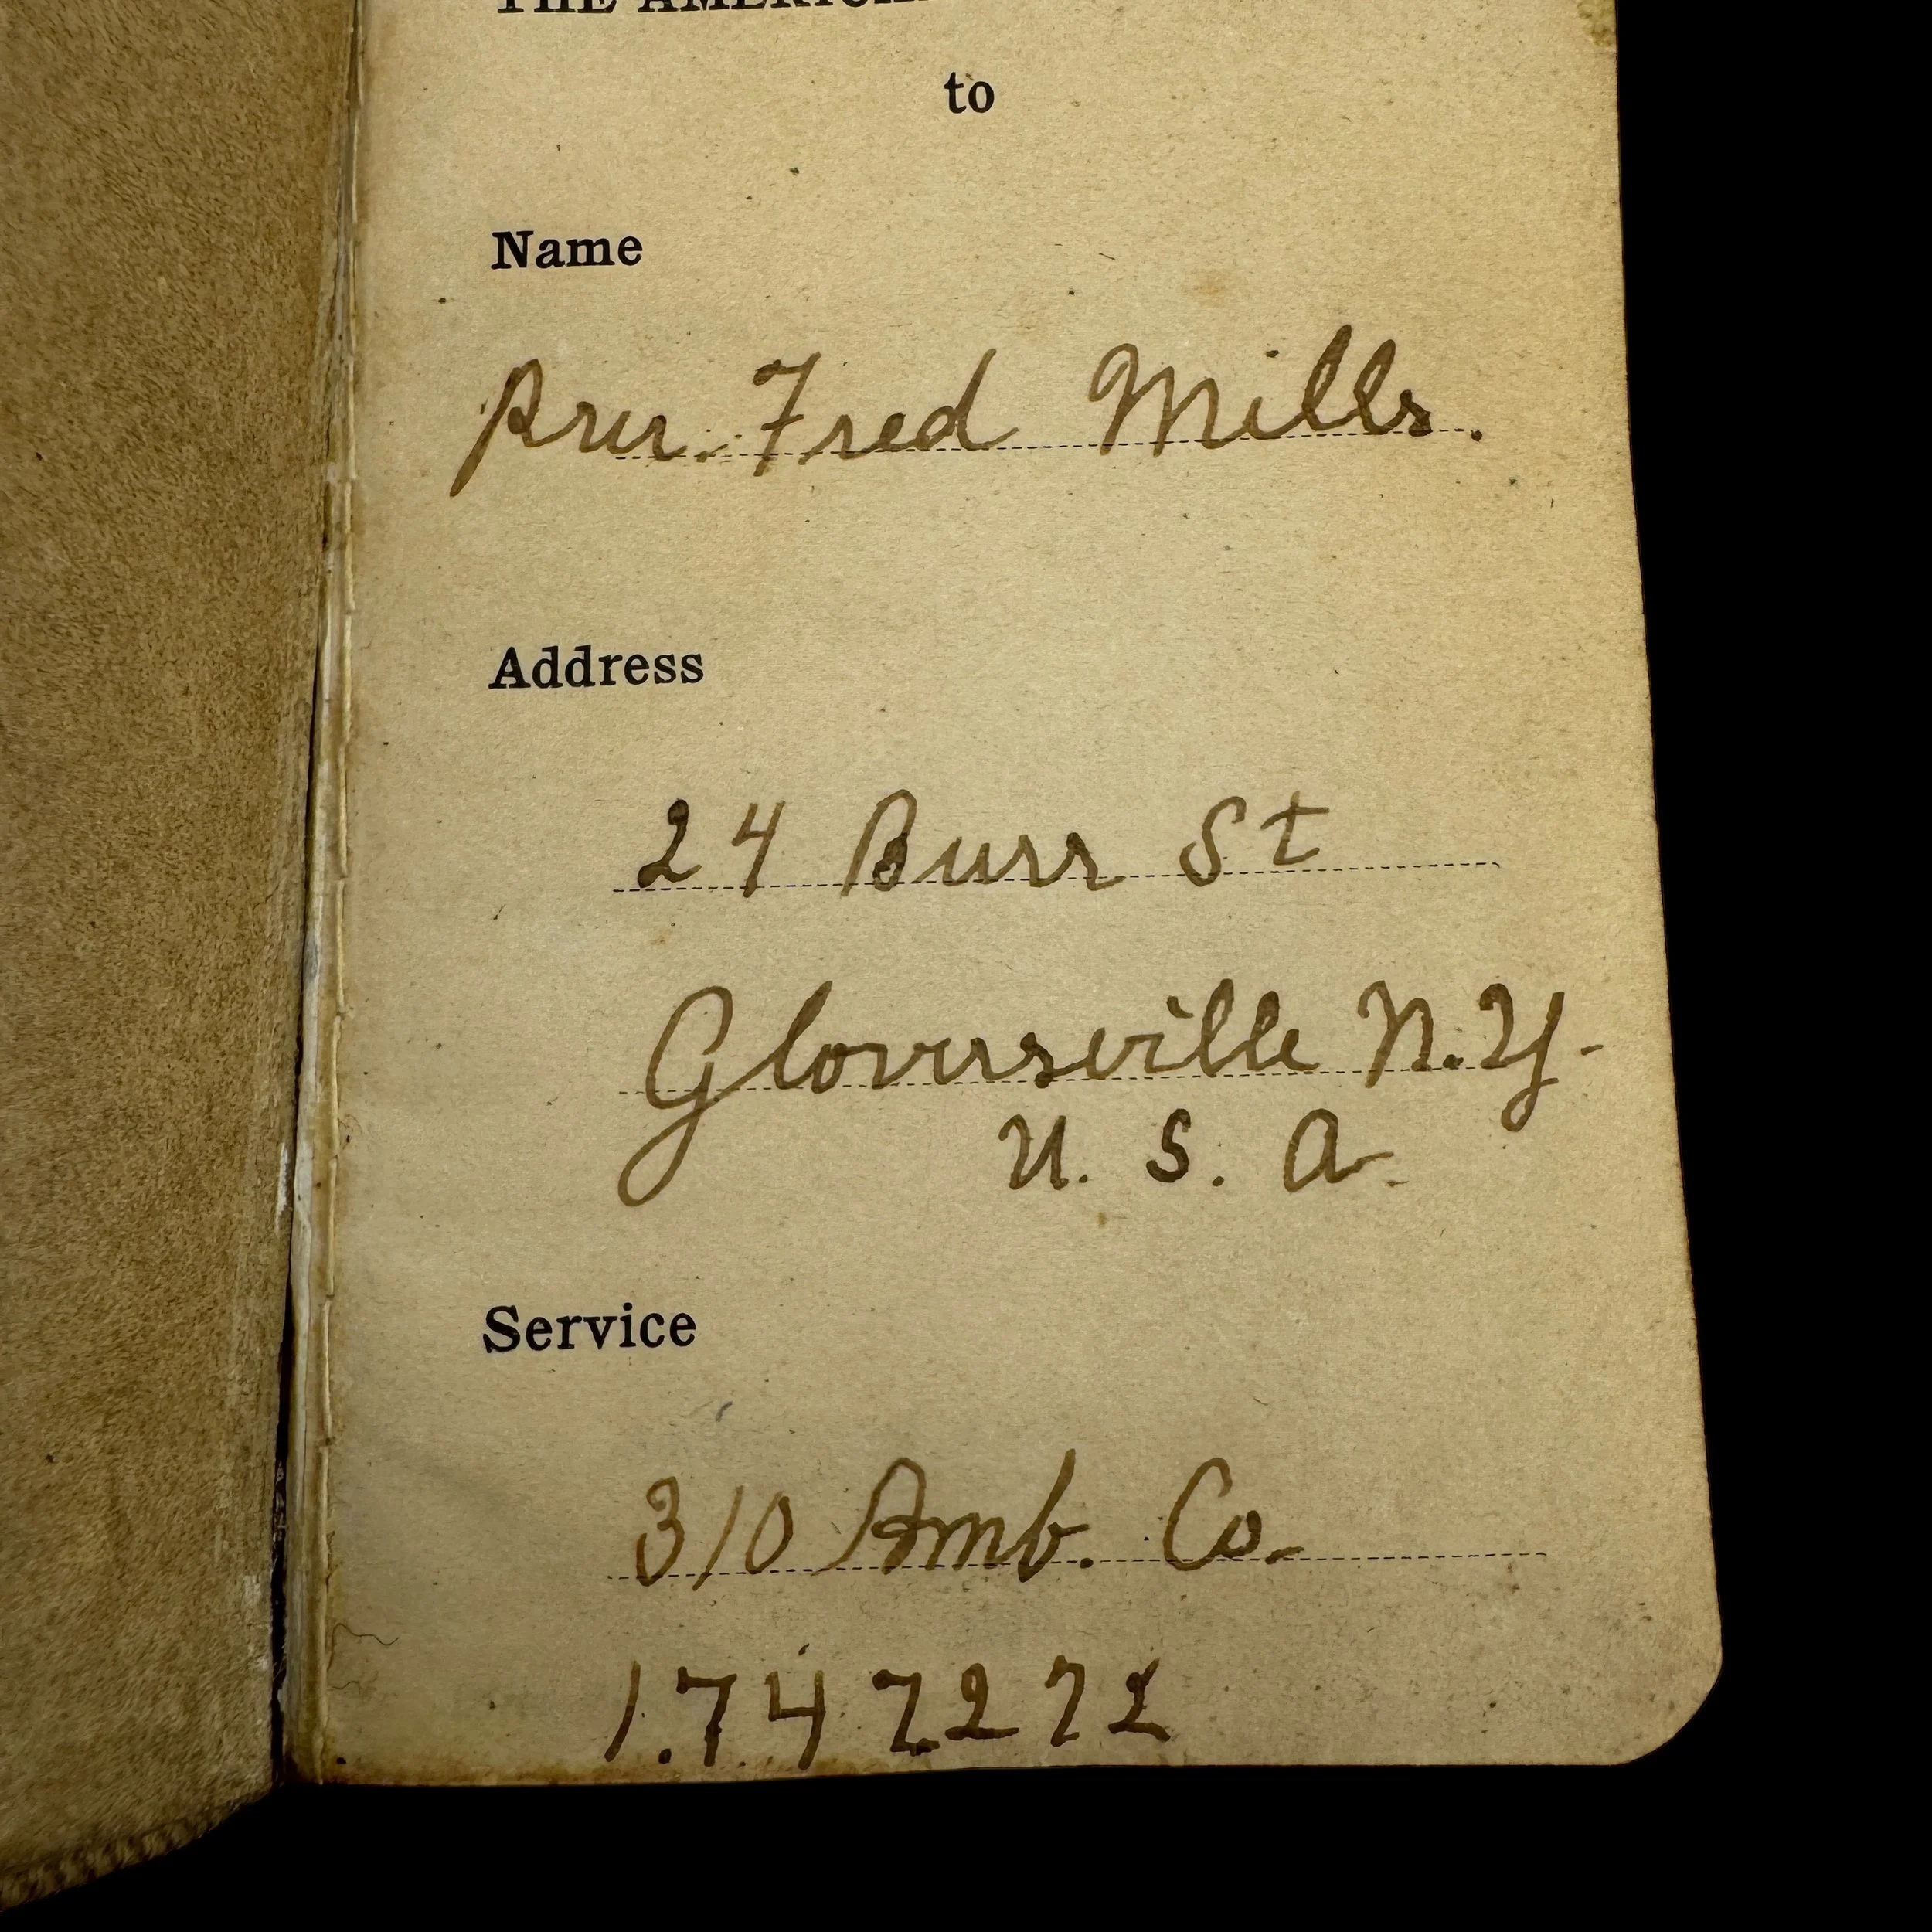 THE AMERICAN
to
Name
Priv. Fred Mills.
Address
24 Burr St
Gloversville N.Y.
U. S. A.
Service
310 Amb. Co.
1.747272